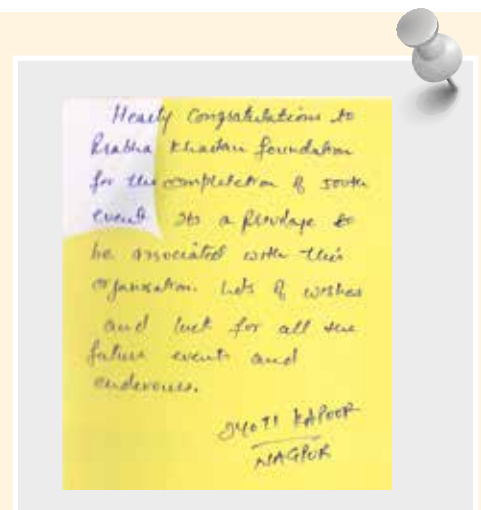 Hearty Congratulations to
Prabha Khaitan foundation
for the completion of 500th
event. Its a privilage to
be associated with this
organisation. Lots of wishes
and luck for all the
future events and
endevours.
JYOTI KAPOOR
NAGPUR